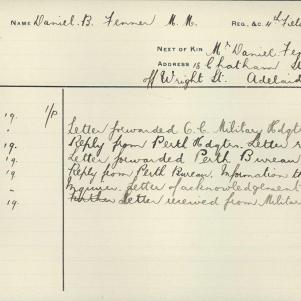 NAME Daniel. B. Fenner M. M. REG. &C. 11th Field
NEXT OF KIN Mr Daniel Fen
ADDRESS 18 Chatham St
off Wright St. Adelaid
19. 1/P Letter forwarded O.C. Military Hdq
" Reply from Perth Hdqtrs. Letter r
19. Letter forwarded Perth Bureau
19. Reply from Perth Bureau. Information th
" Inquirer. Letter of acknowledgement
19. Further Letter received from Milita